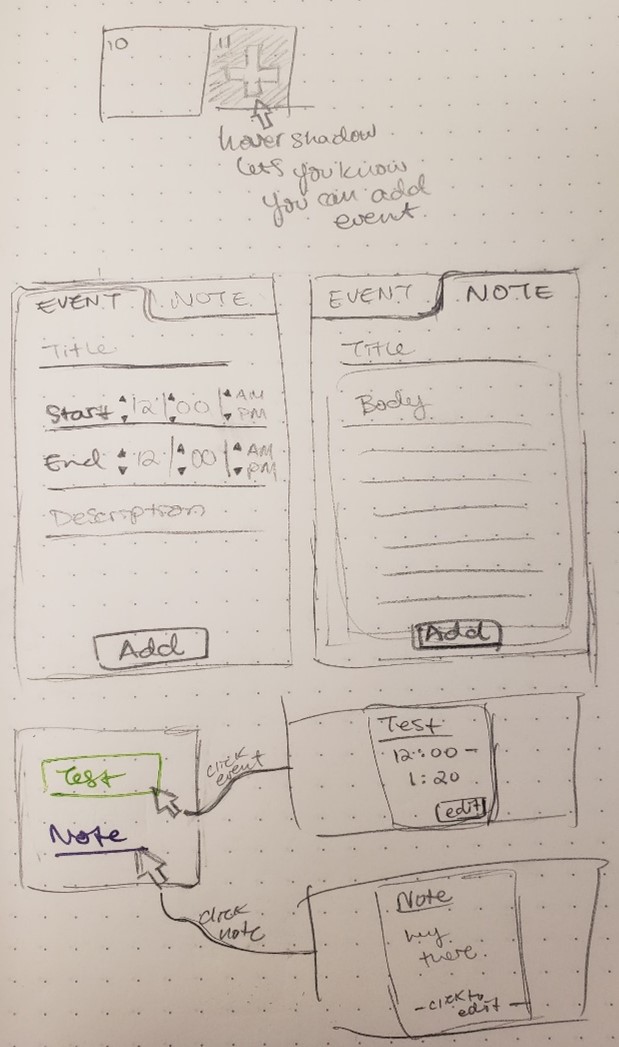 10
11
hover shadow
lets you know
you can add
event.
EVENT
NOTE
Title
Start 12 00 AM
PM
End 12 00 AM
PM
Description
Add
EVENT
NOTE
Title
Body
Add
Test
Note
click
event
Test
12:00 -
1:20
edit
click
note
Note
hey
there.
- click to
edit -